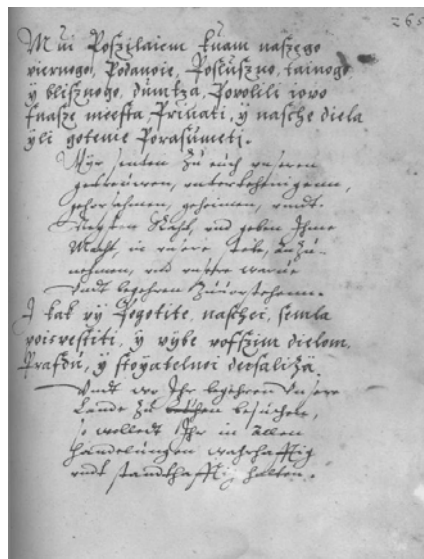 265
Mui Poszilaiem knam naszego
viernogo, Podanoie, Posluszno, tainogo
y blisznogo, dumtza, Povolili iovo
knasze meesta, Priuati, y nasche diela
yli goteme Porasumeti.
Wyr senten Zu euch unseren
getreuwen, unterthenigenn,
gehorsahmen, geheimen, undt.
Rahtt, und geben Ihme
Macht, in
nehmen, und unsere
Undt begehren Zuuorstehenn.
I kak vy Pogotite, naschei, semla
voisvestiti, y vybe vofszim dielom
Prafdu, y stoyatelnoi dersaliszä.
Undt wo Ihr begehren Unsere
Lande Zu besuchen,
so wolledt Ihr in allen
handelungen wahrhafftig
undt standthafftig halten.